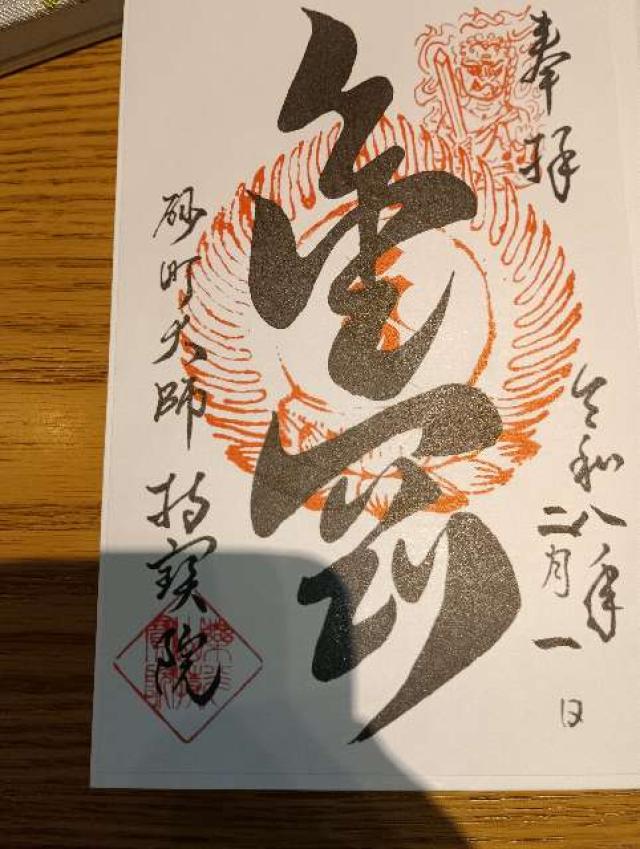 奉拝
令和八年
二月一日
金剛
砂町大師 持寳院